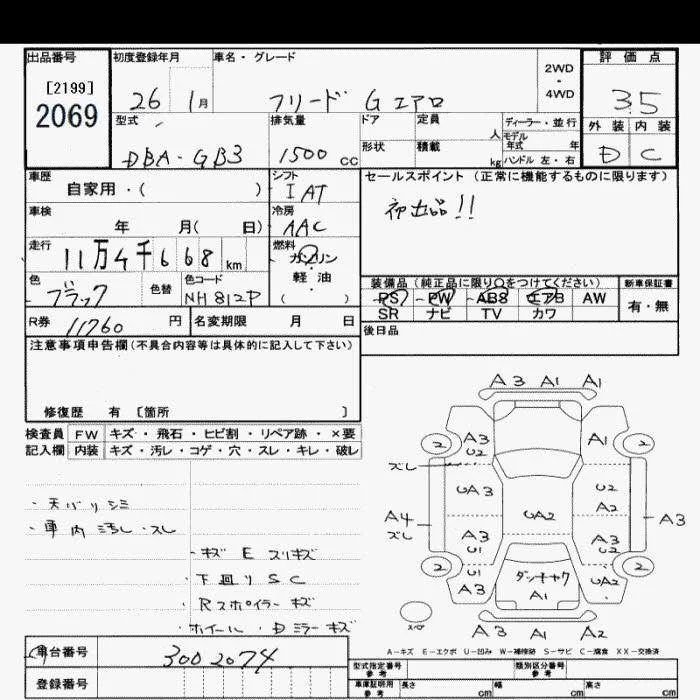 出品番号 初度登録年月 車名・グレード 2WD ・ 4WD 評価点
[2199]
2069
26 1月 フリード G エアロ 3.5
型式 排気量 ドア 定員 人 ディーラー・並行 外装 内装
モデル年式 年
DBA-GB3 1500cc 形状 積載 kg ハンドル 左・右 D C
車歴 シフト セールスポイント(正常に機能するものに限ります)
自家用・( ) IAT
初出品!!
車検 冷房
年 月( 日) AAC
走行 燃料
11万4千668km ガソリン
軽・油
( )
色 色替 色コード 装備品(純正品に限り○をつけてください) 新車保証書
ブラック NH812P PS PW ABS エアB AW 有・無
SR ナビ TV カワ
R券 11760円 名変期限 月 日 後日品
注意事項申告欄(不具合内容等は具体的に記入して下さい)
修復歴 有 [箇所 ]
検査員 FW キズ・飛石・ヒビ割・リペア跡・×要
記入欄 内装 キズ・汚レ・コゲ・穴・スレ・キレ・破レ
・天バリシミ
・車内汚レ・スレ
・キズ E スリキズ
・下回りSC
・Rスポイラーキズ
・ホイール・Dミラーキズ
A3 A1 A1
2 A3 U2 A1 2
ズレ
UA3 U2
A2
A4 UA2 A3
ズレ
A3 U1 A3 U2
2 U1 A3 ダンキャク A1 UA2 2
A3 A1 A2
A-キズ E-エクボ U-凹み W-補修跡 S-サビ C-腐食 XX-交換済
車台番号 3002074
登録番号
型式指定番号 参考 類別区分番号 参考
車庫証明用 参考 長さ cm 幅 cm 高さ cm